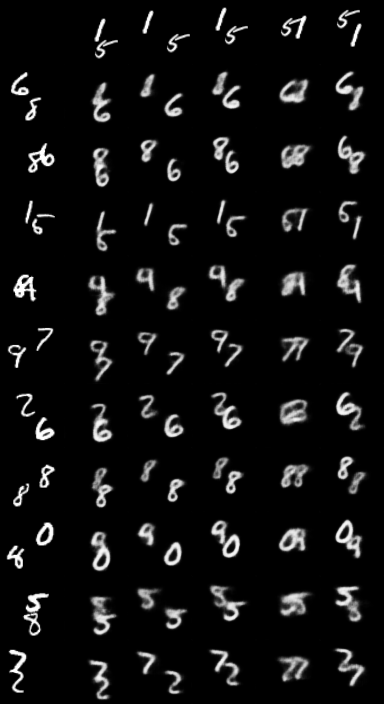 15 15 15 51 51
68 86 86 86 68 68
86 86 86 86 68 68
15 15 15 15 51 51
84 48 48 48 84 84
97 97 97 97 77 79
26 26 26 26 62
88 88 88 88 88 88
80 90 90 90 09 09
58 55 55 55 55 58
72 72 72 72 77 27